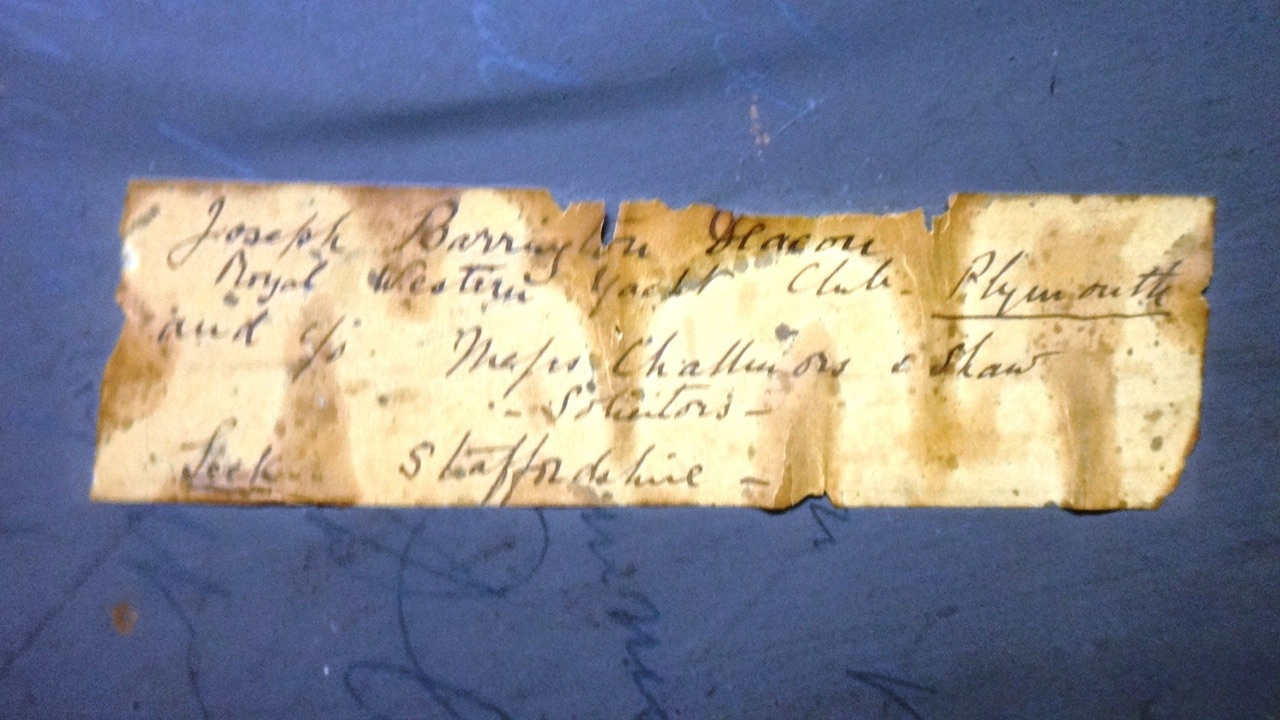 Joseph Barrington Deacon
Royal Western Yacht Club - Plymouth
and c/o Messrs Challinors & Shaw
- Solicitors -
Leek Staffordshire -